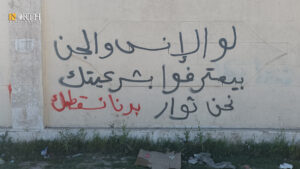 NORTH
لو الإنس والجن
بيعترفوا بشرعيتك
نحن ثوار بدنا نسقطك